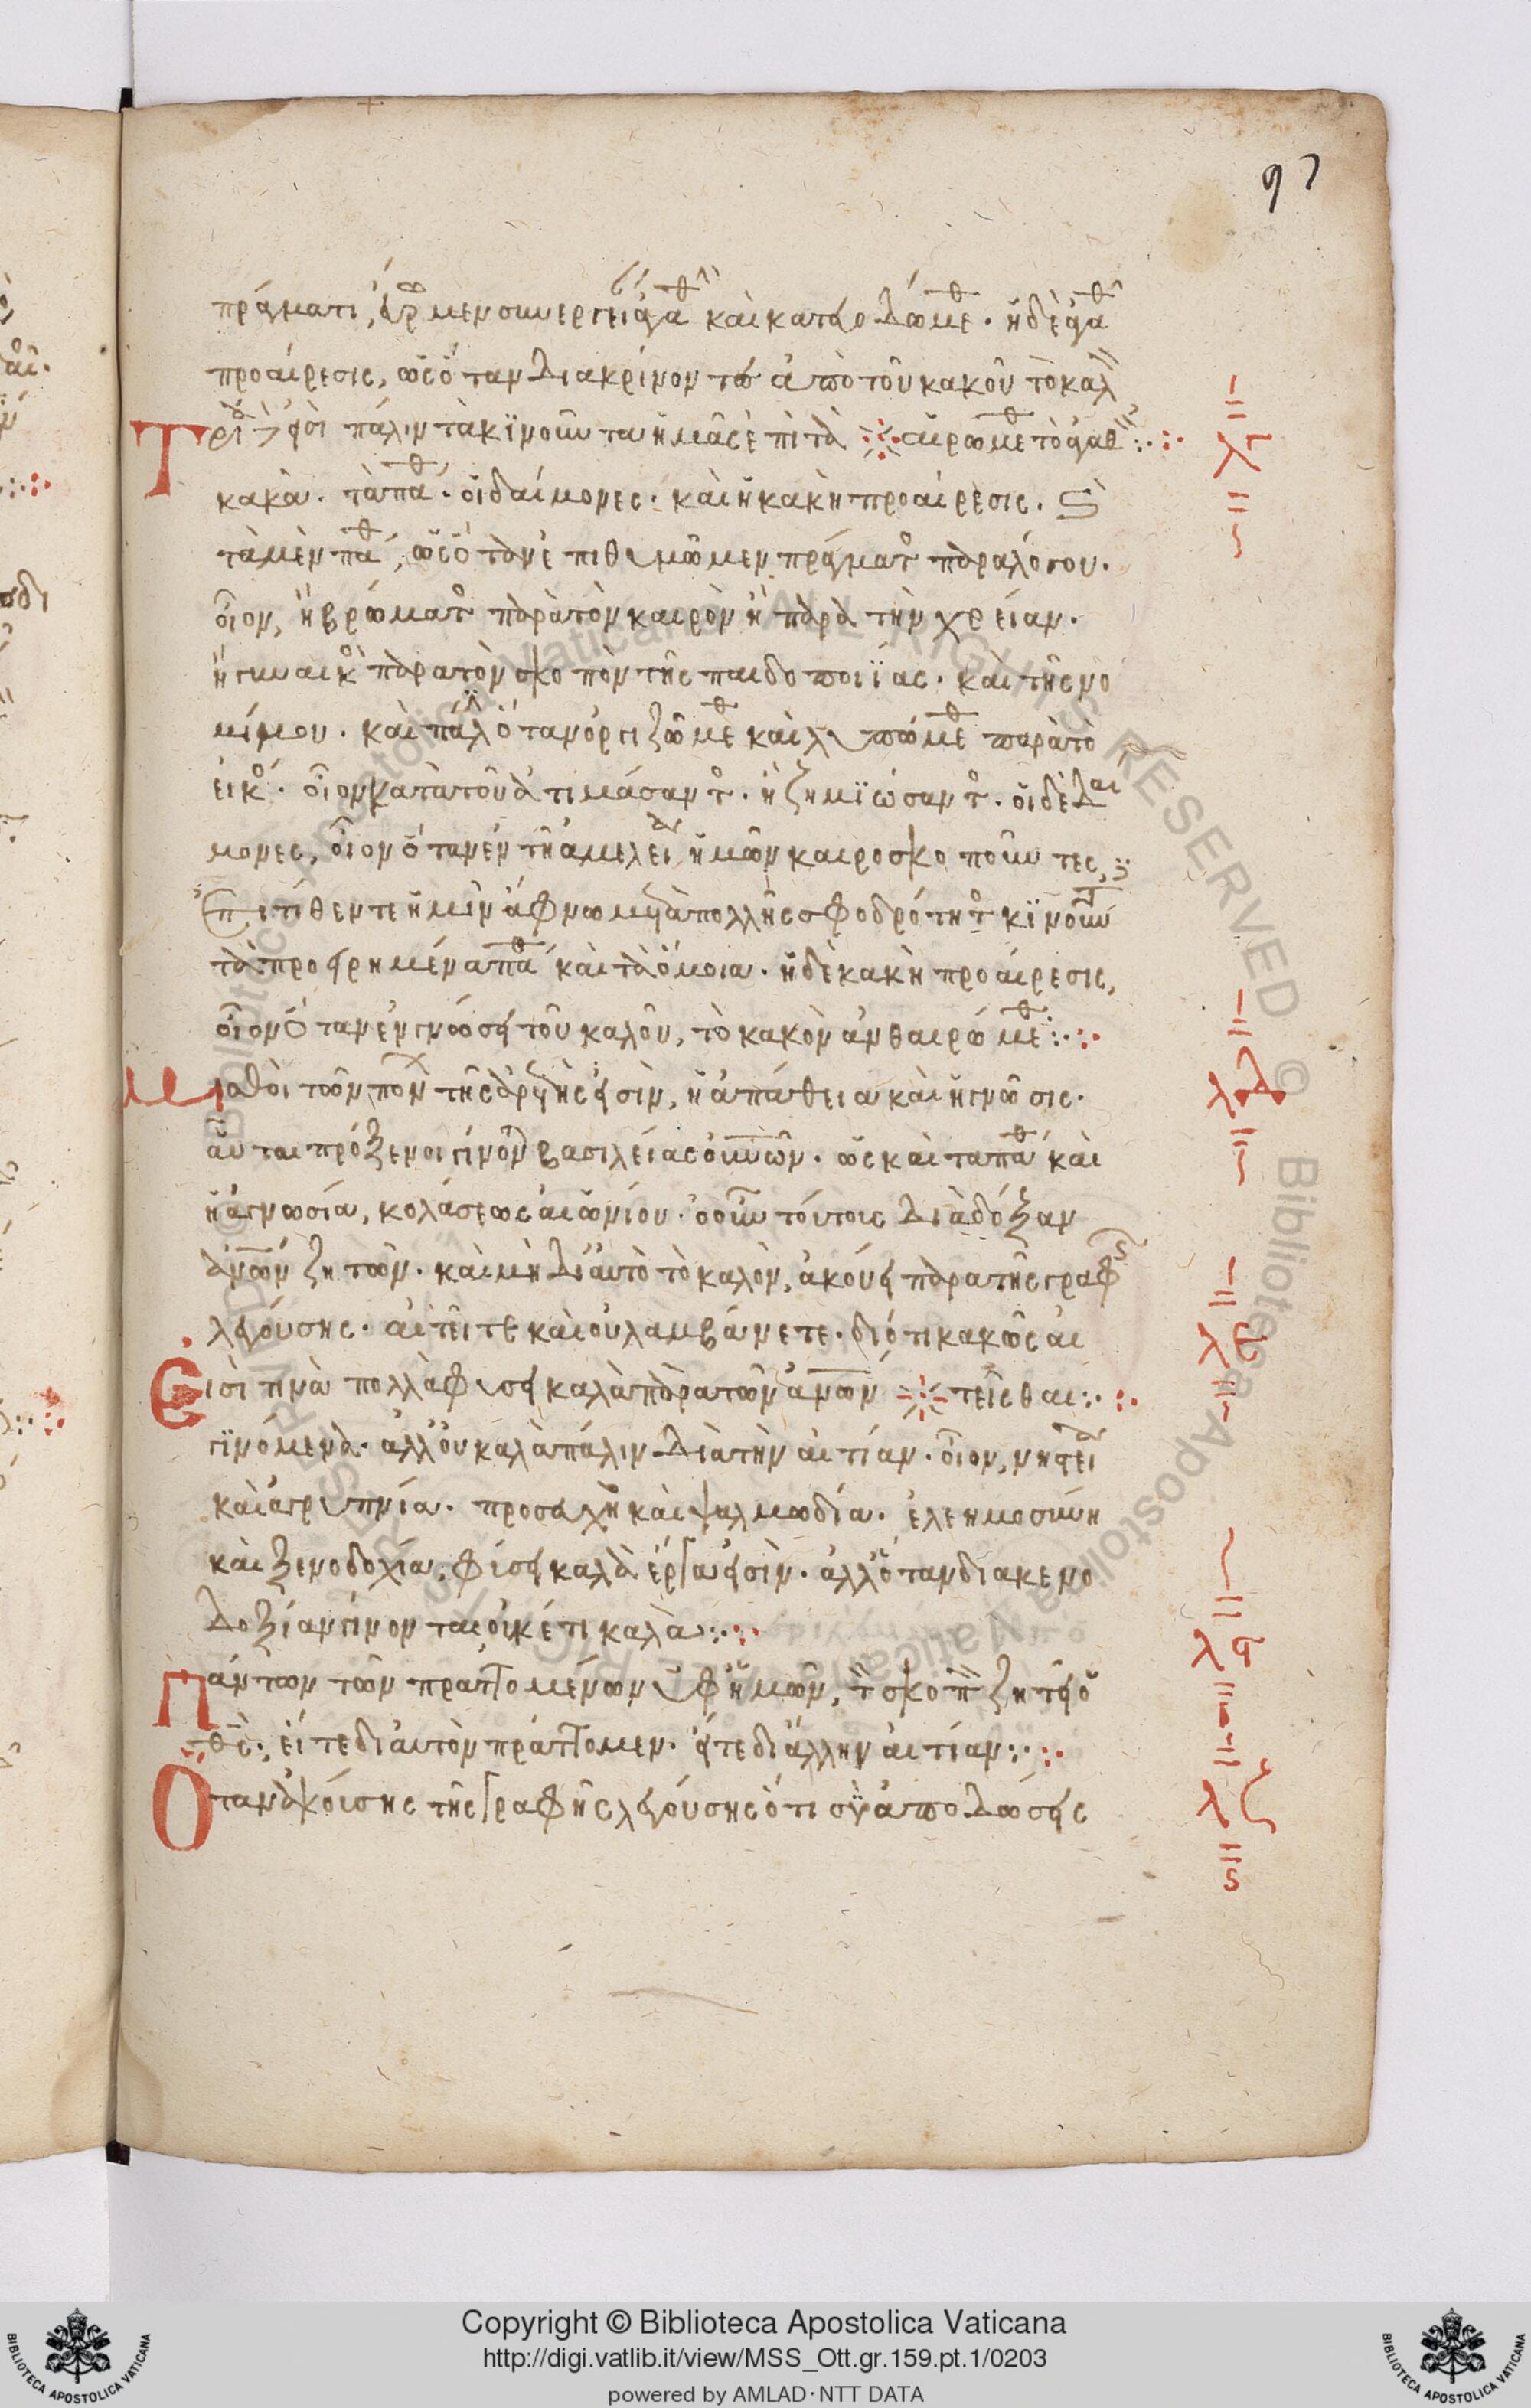 97
πράγματι, εὑρίσκομεν συνεργείαν ἀγαθὴν καὶ κατευοδώμεθα. ἡ δὲ ἀγαθὴ
προαίρεσις, ὡς ὅταν διακρίνοντες ἀπὸ τοῦ κακοῦ τὸ καλὸν
Τρία εἰσὶ πάλιν τὰ κϊνοῦντα ἡμᾶς ἐπὶ τὰ αἱρώμεθα τὸ ἀγαθόν
λγ
κακά. τὰ πάθη. οἱ δαίμονες. καὶ ἡ κακὴ προαίρεσις. καὶ
τὰ μὲν πάθη, ὡς ὅταν ἐπιθυμῶμεν πράγματος παραλόγου.
οἷον, ἢ βρώματος παρὰ τὸν καιρὸν ἢ παρὰ τὴν χρείαν.
ἢ γυναικὸς παρὰ τὸν σκοπὸν τῆς παιδοποιΐας. καὶ τῆς νο
μίμου. καὶ πάλιν ὅταν ὀργιζώμεθα καὶ λυπώμεθα παρὰ τὸ
εἰκός. οἷον κατὰ τοῦ ἀτιμάσαντος. ἢ ζημϊώσαντος. οἱ δὲ δαί
μονες, οἷον ὅταν ἐν τῇ ἀμελείᾳ ἡμῶν καιροσκοποῦντες,
ἐπιτίθενται ἡμῖν ἄφνω μετὰ πολλῆς σφοδρότητος κϊνοῦντες
τὰ προειρημένα πάθη καὶ τὰ ὅμοια. ἡ δὲ κακὴ προαίρεσις,
οἷον ὅταν ἐν γνώσει τοῦ καλοῦ, τὸ κακὸν ἀνθαιρώμεθα
Μισθοὶ τῶν πόνων τῆς ἀρετῆς εἰσὶν, ἡ ἀπάθεια καὶ ἡ γνῶσις.
λδ
αὗται πρόξενοι γίνονται βασιλείας οὐνῶν. ὡς καὶ τὰ πάθη καὶ
ἡ ἀγνωσία, κολάσεως αἰωνίου. ὁ οὖν τούτοις διὰ δόξαν
ἀνῶν ζητῶν. καὶ μὴ δι' αὐτὸ τὸ καλὸν, ἀκούει παρὰ τῆς γραφῆς
λεγούσης. αἰτεῖτε καὶ οὐ λαμβάνετε. διότι κακῶς αἰ
Εἰσὶ τινὰ πολλὰ φύσει καλὰ παρὰ τῶν ἀνῶν τεῖσθαι
λε
γϊνόμενα. ἀλλ' οὐ καλὰ πάλιν διὰ τὴν αἰτίαν. οἷον, νηστεία
καὶ ἀγρυπνία. προσευχὴ καὶ ψαλμωδία. ἐλεημοσύνη
καὶ ξενοδοχία, φύσει καλὰ ἔργα εἰσὶν. ἀλλ' ὅταν διὰ κενο
δοξίαν γίνονται οὐκέτι καλὰ
Πάντων τῶν πραττομένων ὑφ' ἡμῶν, τὸν σκοπὸν ζητεῖ ὁ
λϛ
θς, εἴτε δι' αὐτὸν πράττομεν. εἴτε δι' ἄλλην αἰτίαν
Ὅταν ἀκούσῃς τῆς γραφῆς λεγούσης ὅτι σὺ ἀποδώσεις
λζ
Copyright © Biblioteca Apostolica Vaticana
http://digi.vatlib.it/view/MSS_Ott.gr.159.pt.1/0203
powered by AMLAD·NTT DATA